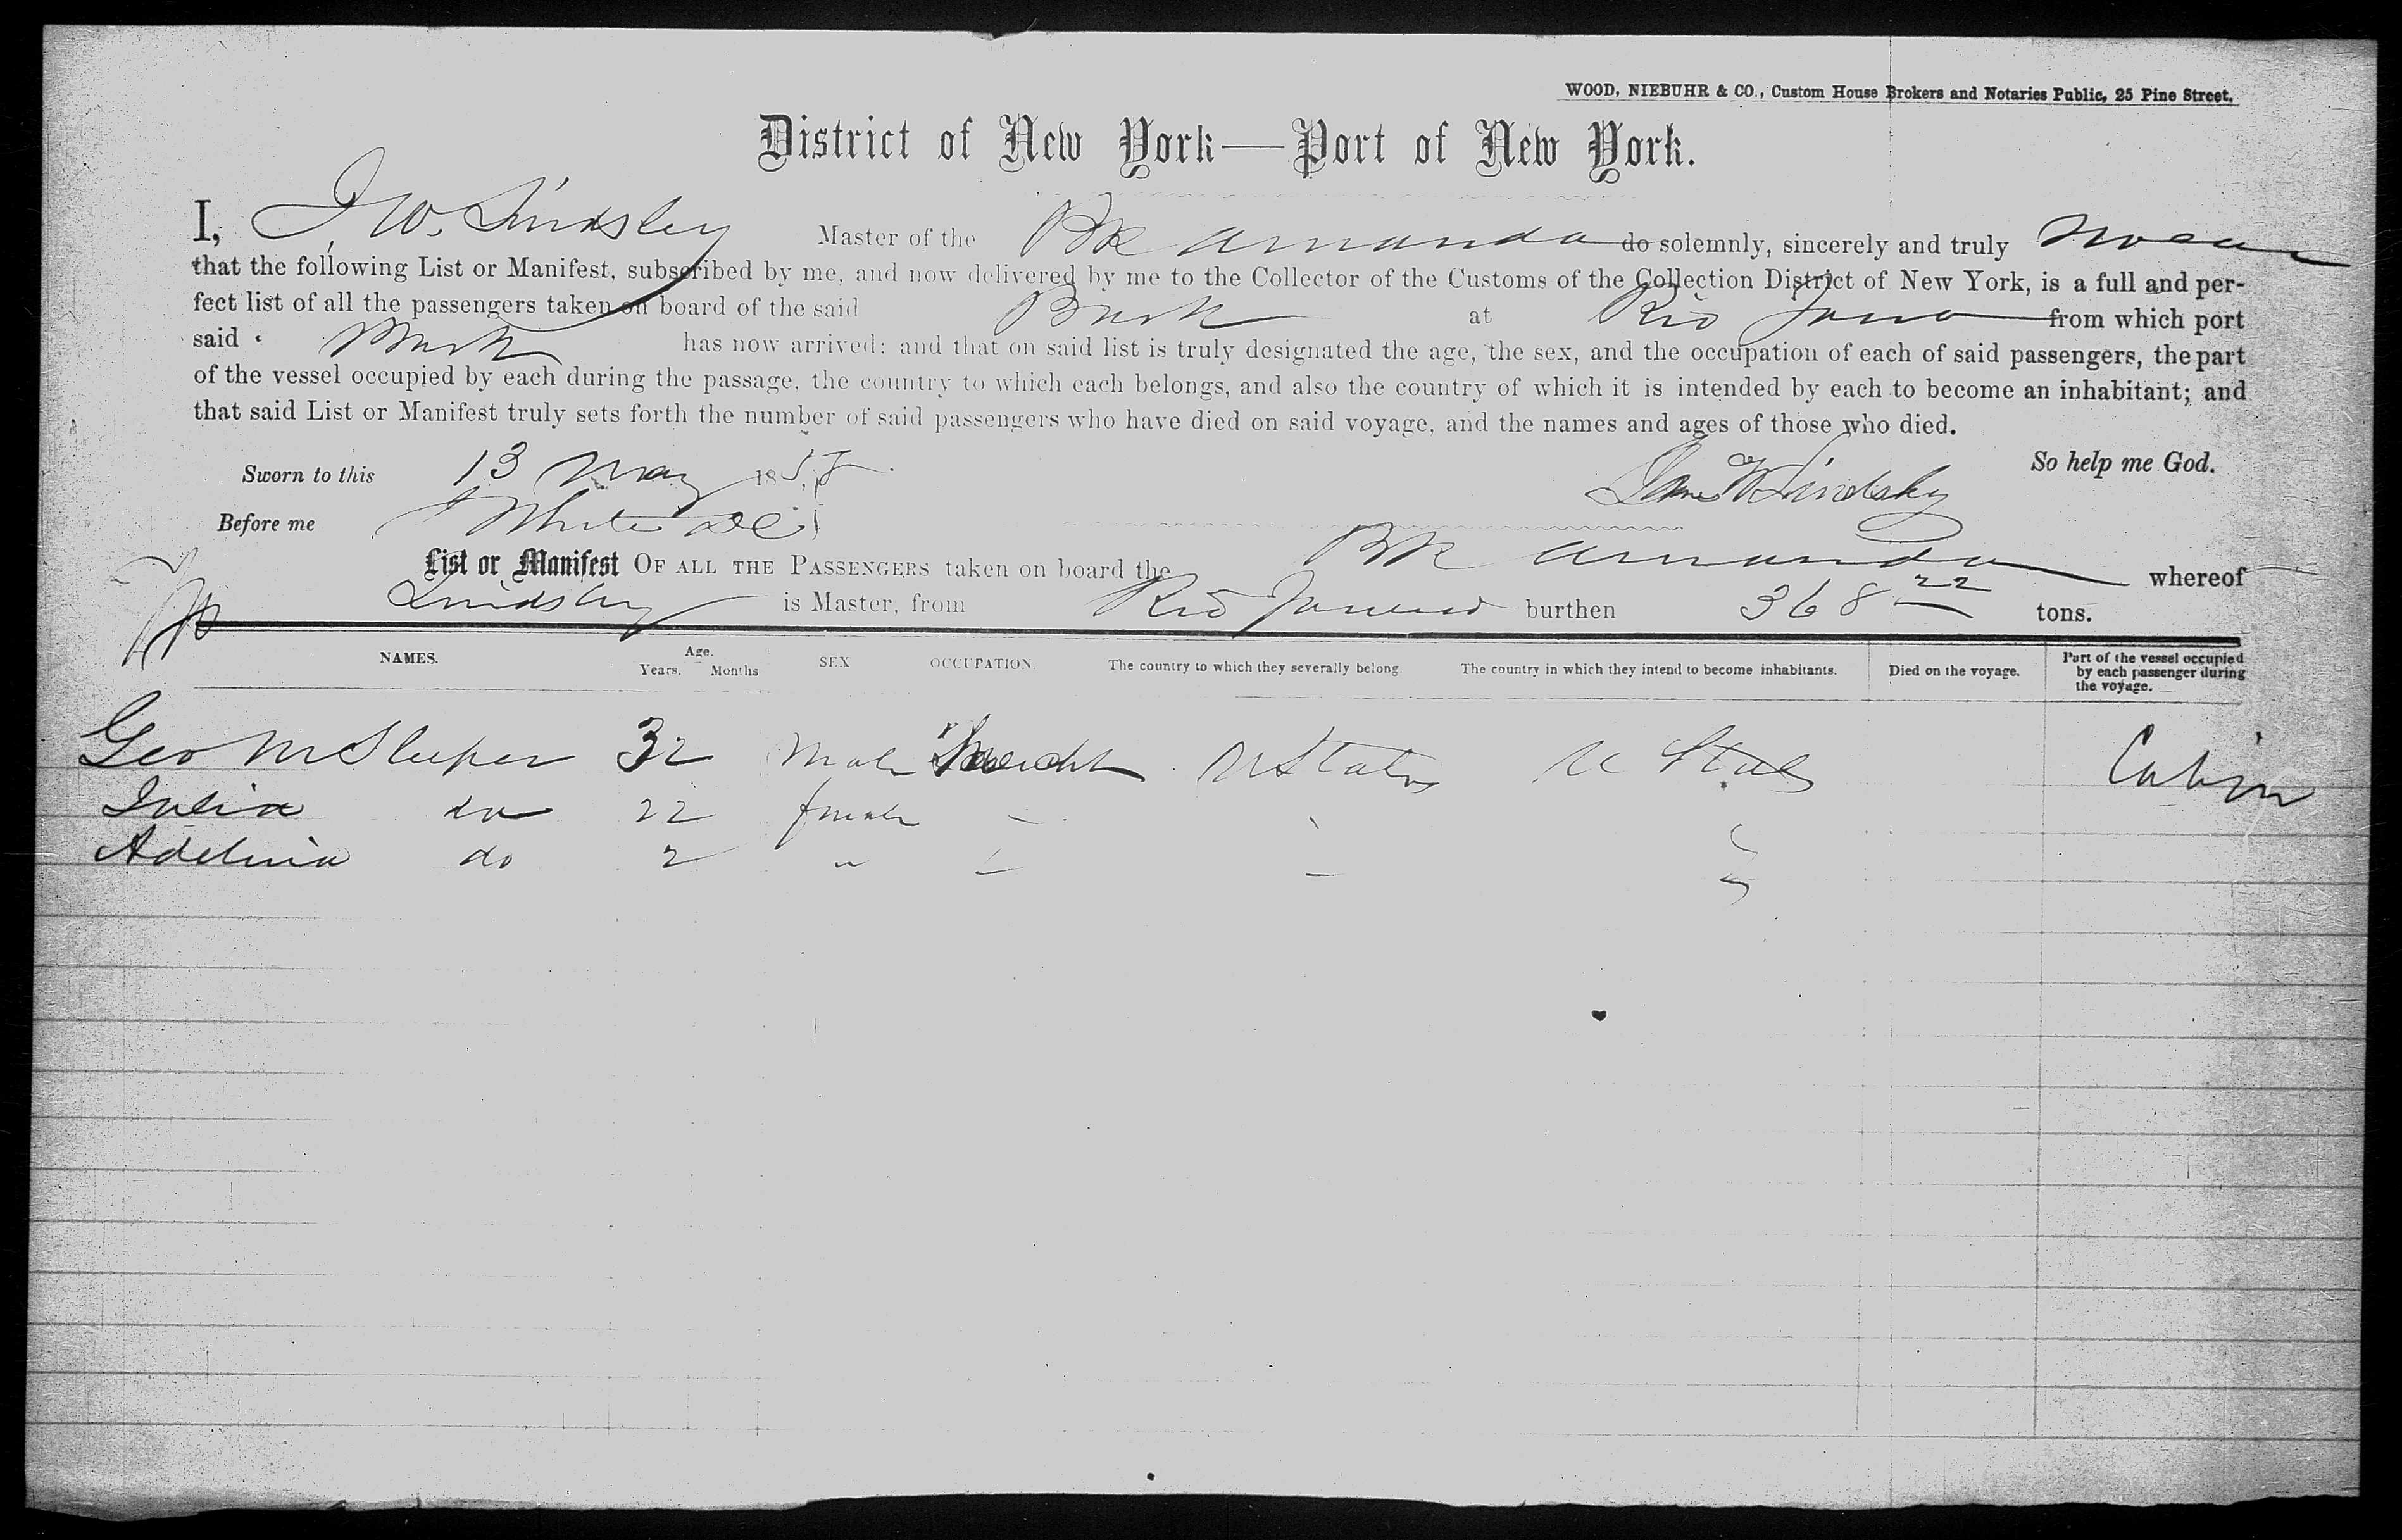 WOOD, NIEBUHR & CO., Custom House Brokers and Notaries Public, 25 Pine Street.
District of New York—Port of New York.
I, J W. Lindsley Master of the Bk Amanda do solemnly, sincerely and truly swear
that the following List or Manifest, subscribed by me, and now delivered by me to the Collector of the Customs of the Collection District of New York, is a full and per-
fect list of all the passengers taken on board of the said Bark at Rio Janro from which port
said Bark has now arrived: and that on said list is truly designated the age, the sex, and the occupation of each of said passengers, the part
of the vessel occupied by each during the passage, the country to which each belongs, and also the country of which it is intended by each to become an inhabitant; and
that said List or Manifest truly sets forth the number of said passengers who have died on said voyage, and the names and ages of those who died.
So help me God.
Sworn to this 13 May 1858 W Lindsley
Before me White
List or Manifest OF ALL THE PASSENGERS taken on board the Bk Amanda whereof
Lindsley is Master, from Rio Janeiro burthen 368 22 tons.
NAMES. Age. Years. Months SEX OCCUPATION. The country to which they severally belong. The country in which they intend to become inhabitants. Died on the voyage. Part of the vessel occupied by each passenger during the voyage.
Geo M Sleeper 32 Male Mercht U States U States Cabin
Julia do 22 female -
Adelina do 2 " - -